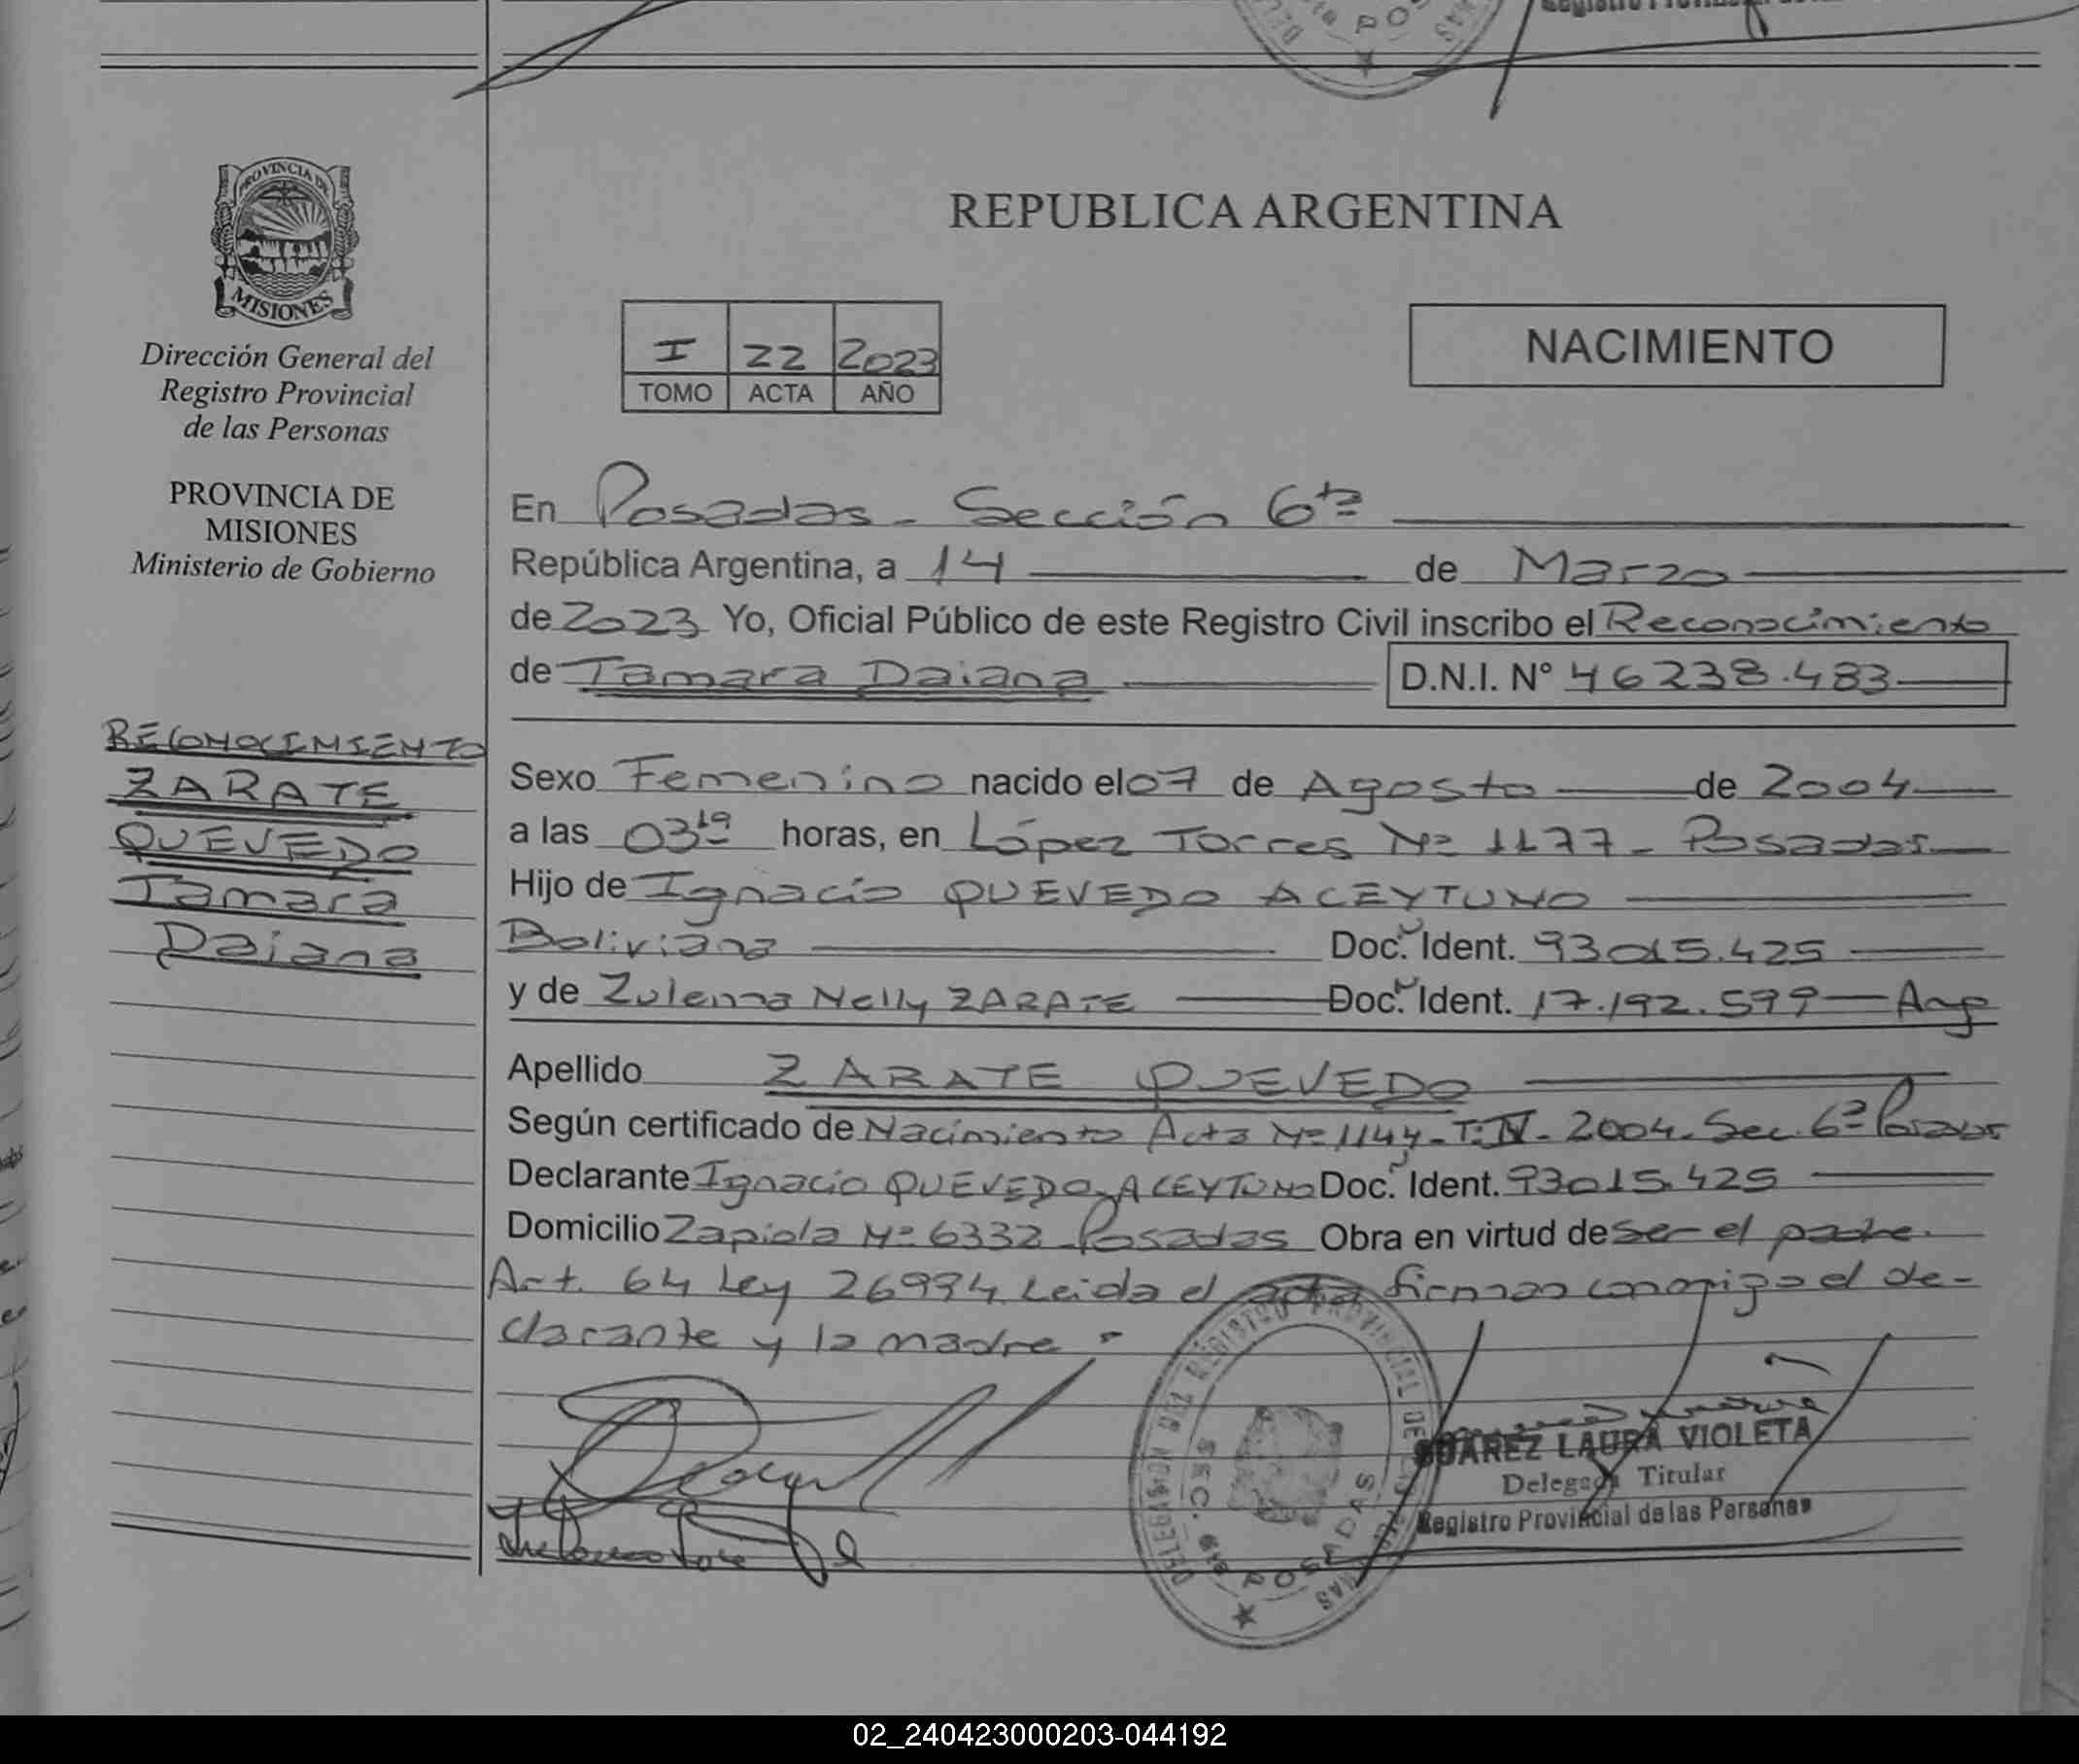 Registro Provincial
PROVINCIA DE
MISIONES
Dirección General del
Registro Provincial
de las Personas
PROVINCIA DE
MISIONES
Ministerio de Gobierno
RECONOCIMIENTO
ZARATE
QUEVEDO
Tamara
Daiana
REPUBLICA ARGENTINA
I 22 2023
TOMO ACTA AÑO
NACIMIENTO
En Posadas - Sección 6ta
República Argentina, a 14 de Marzo
de 2023 Yo, Oficial Público de este Registro Civil inscribo el Reconocimiento
de Tamara Daiana D.N.I. Nº 46238.483
Sexo Femenino nacido el 07 de Agosto de 2004
a las 03 19 horas, en López Torres Nº 1177 - Posadas
Hijo de Ignacio QUEVEDO ACEYTUNO
Boliviana Doc. Ident. 93015.425
y de Zulema Nelly ZARATE Doc. Ident. 17.192.599 - Arg
Apellido ZARATE QUEVEDO
Según certificado de Nacimiento Acta Nº 1144 - T: IV - 2004. Sec. 6ª Posadas
Declarante Ignacio QUEVEDO ACEYTUNO Doc. Ident. 93015.425
Domicilio Zapiola Nº 6332 Posadas Obra en virtud de ser el padre.
Art. 64 Ley 26994. Leida el acta firman conmigo el de-
clarante y la madre.
DELEGACION DEL REGISTRO PROVINCIAL DE
SECC. 6ta POSADAS
SUAREZ LAURA VIOLETA
Delegada Titular
Registro Provincial de las Personas
02_240423000203-044192